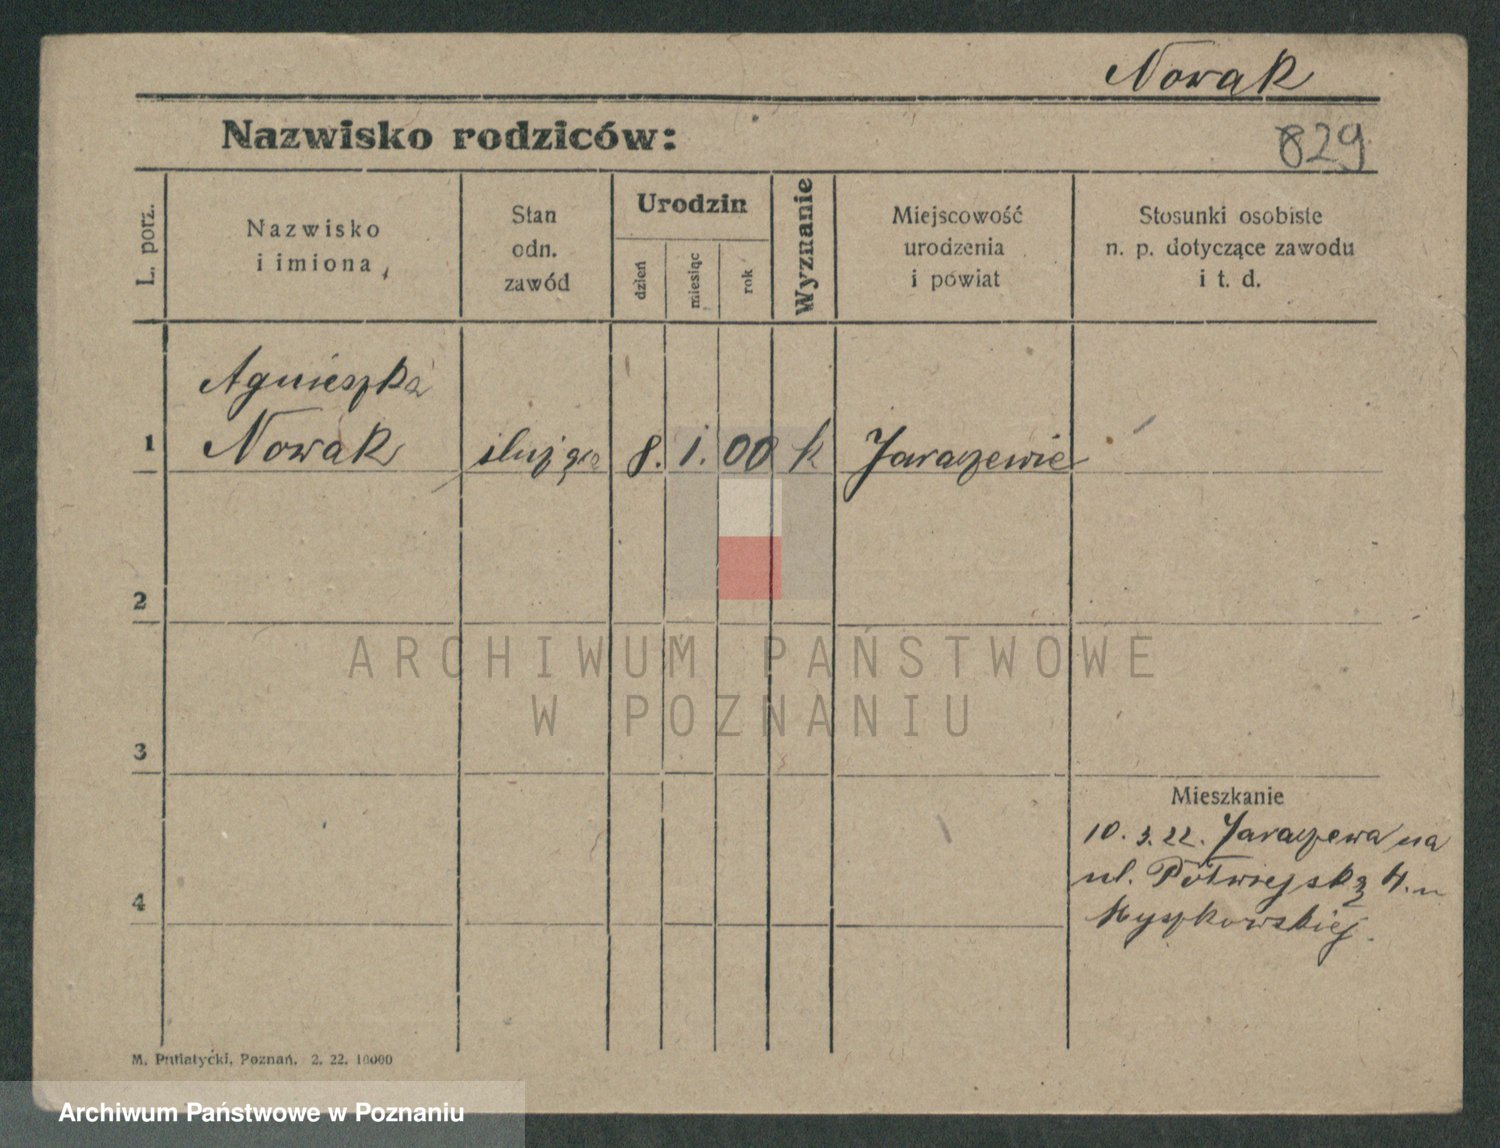 Nowak
Nazwisko rodziców:
829
L. porz.
Nazwisko
i imiona
Stan
odn.
zawód
Urodzin
dzień
miesiąc
rok
Wyznanie
Miejscowość
urodzenia
i powiat
Stosunki osobiste
n. p. dotyczące zawodu
i t. d.
Agnieszka
1 Nowak służąca 8. 1. 00 k Jaraczewie
2
3
4
Mieszkanie
10. 3. 22. Jaraczewa na
ul. Półwiejską 4. u
Kyszkowskiej.
M. Putiatycki, Poznań. 2. 22. 10000
ARCHIWUM PAŃSTWOWE
W POZNANIU
Archiwum Państwowe w Poznaniu